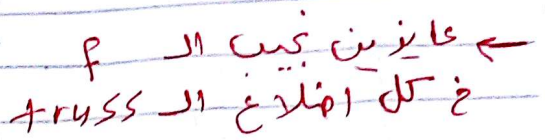 ← عايزين نجيب الـ F
في كل اضلاع الـ truss